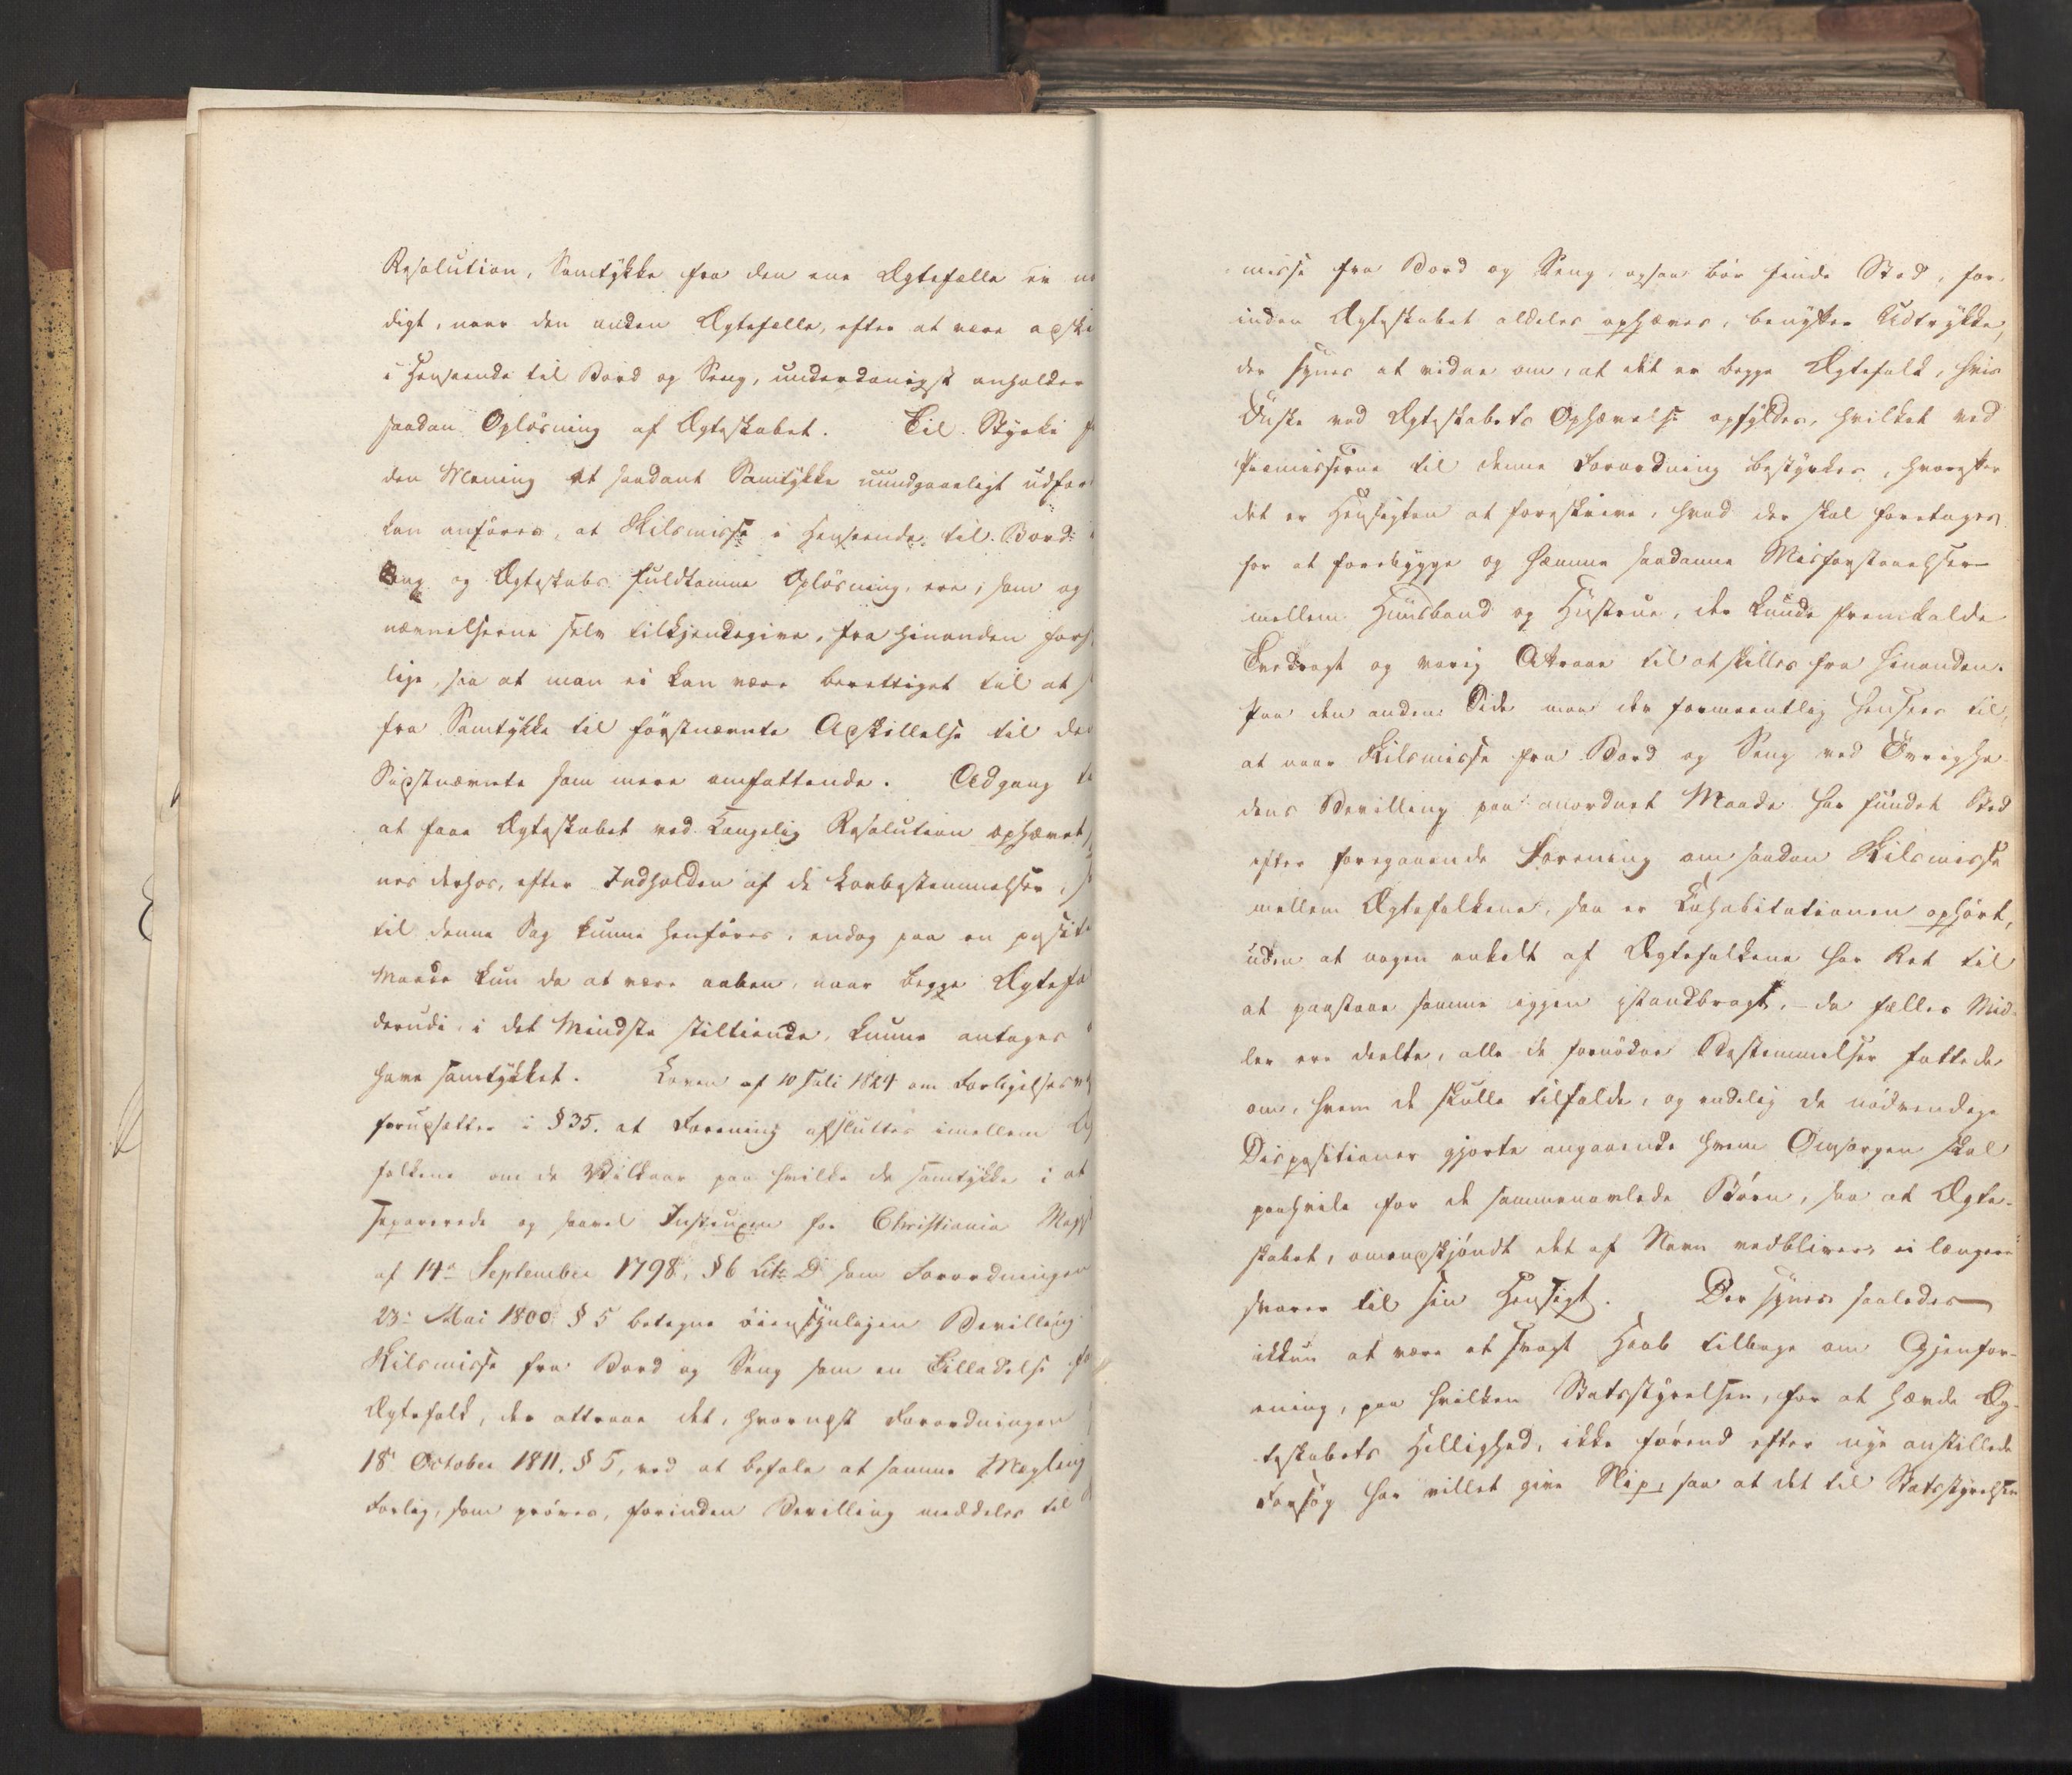 Resolution, Samtykke fra den ene Ægtefælle er nø
digt, naar den anden Ægtefælle, efter at være adski
i Henseende til Bord og Seng, underdanigst anholder
saadan Opløsning af Ægteskabet. Til Styrke f
den Mening at saadant Samtykke uundgaaeligt udfor
kan anføres, at Skilsmisse i Henseende til Bord
Seng og Ægteskabs fuldkomne Opløsning, ere, som og
nævnelserne selv tilkjendegive, fra hinanden forsk
lige, saa at man ei kan være berettiget til at s
fra Samtykke til førstnævnte Adskillelse til den
Sidstnævnte som mere omfattende. Adgang t
at faae Ægteskabet ved Kongelig Resolution ophævet, s
nes derhos, efter Indholden af de Lovbestemmelser, s
til denne Sag kunne henføres, endog paa en positiv
Maade kun da at være aaben, naar begge Ægtefo
derudi, i det Mindste stiltiende, kunne antages
have samtykket. Loven af 10 Juli 1824 om Forligelsesv
forudsætter i § 35. at Forening afsluttes imellem Æg
folkene om de Vilkaar paa hvilke de samtykke i at
separerede og saavel Instruxen for Christiania Magist
af 14de September 1798, § 6 Litr D som Forordningen
23de Mai 1800 § 5 betegne øiensynligen Bevilling
Skilsmisse fra Bord og Seng som en Tilladelse fo
Ægtefolk, der attraae det, hvornæst Forordningen
18 October 1811. § 5, ved at befale at samme Mægling
Forlig, som prøves, forinden Bevilling meddeles til
misse fra Bord og Seng, ogsaa bør finde Sted, for-
inden Ægteskabet aldeles ophæves, benytter Udtrykke,
der synes at vidne om, at det er begge Ægtefolk, hvis
Ønske ved Ægteskabets Ophævelse opfyldes, hvilket ved
Præmisserne til denne Forordning bestyrkes, hvorefter
det er Hensigten at foreskrive, hvad der skal foretages
for at forebygge og hæmme saadanne Misforstaaelser
mellem Huusbond og Hustrue, der kunde fremkalde
Tvedragt og varig Attraae til at skilles fra hinanden.
Paa den anden Side maa der formeentlig henses til,
at naar Skilsmisse fra Bord og Seng ved Øvrighe-
dens Bevilling paa anordnet Maade har fundet Sted
efter foregaaende Forening om saadan Skilsmisse
mellem Ægtefolkene, saa er Cohabitationen ophørt,
uden at nogen enkelt af Ægtefolkene har Ret til
at paastaae samme igjen istandbragt, – da fælles Mid-
ler ere deelte, alle de fornødne Bestemmelser fattede
om, hvem de skulle tilfalde, og endelig de nødvendige
Dispositioner gjorte angaaende hvem Omsorgen skal
paahvile for de sammenavlede Børn, saa at Ægte-
skabet, omendskjøndt det af Navn vedbliver, ei længere
svarer til sin Hensigt. Der synes saaledes
ikkun at være et svagt Haab tilbage om Gjenfor-
ening, paa hvilken Statsstyrelsen, for at hævde Æg-
teskabets Hellighed, ikke førend efter nye anstillede
Forsøg har villet give Slip, saa at det til Statsstyrelsen